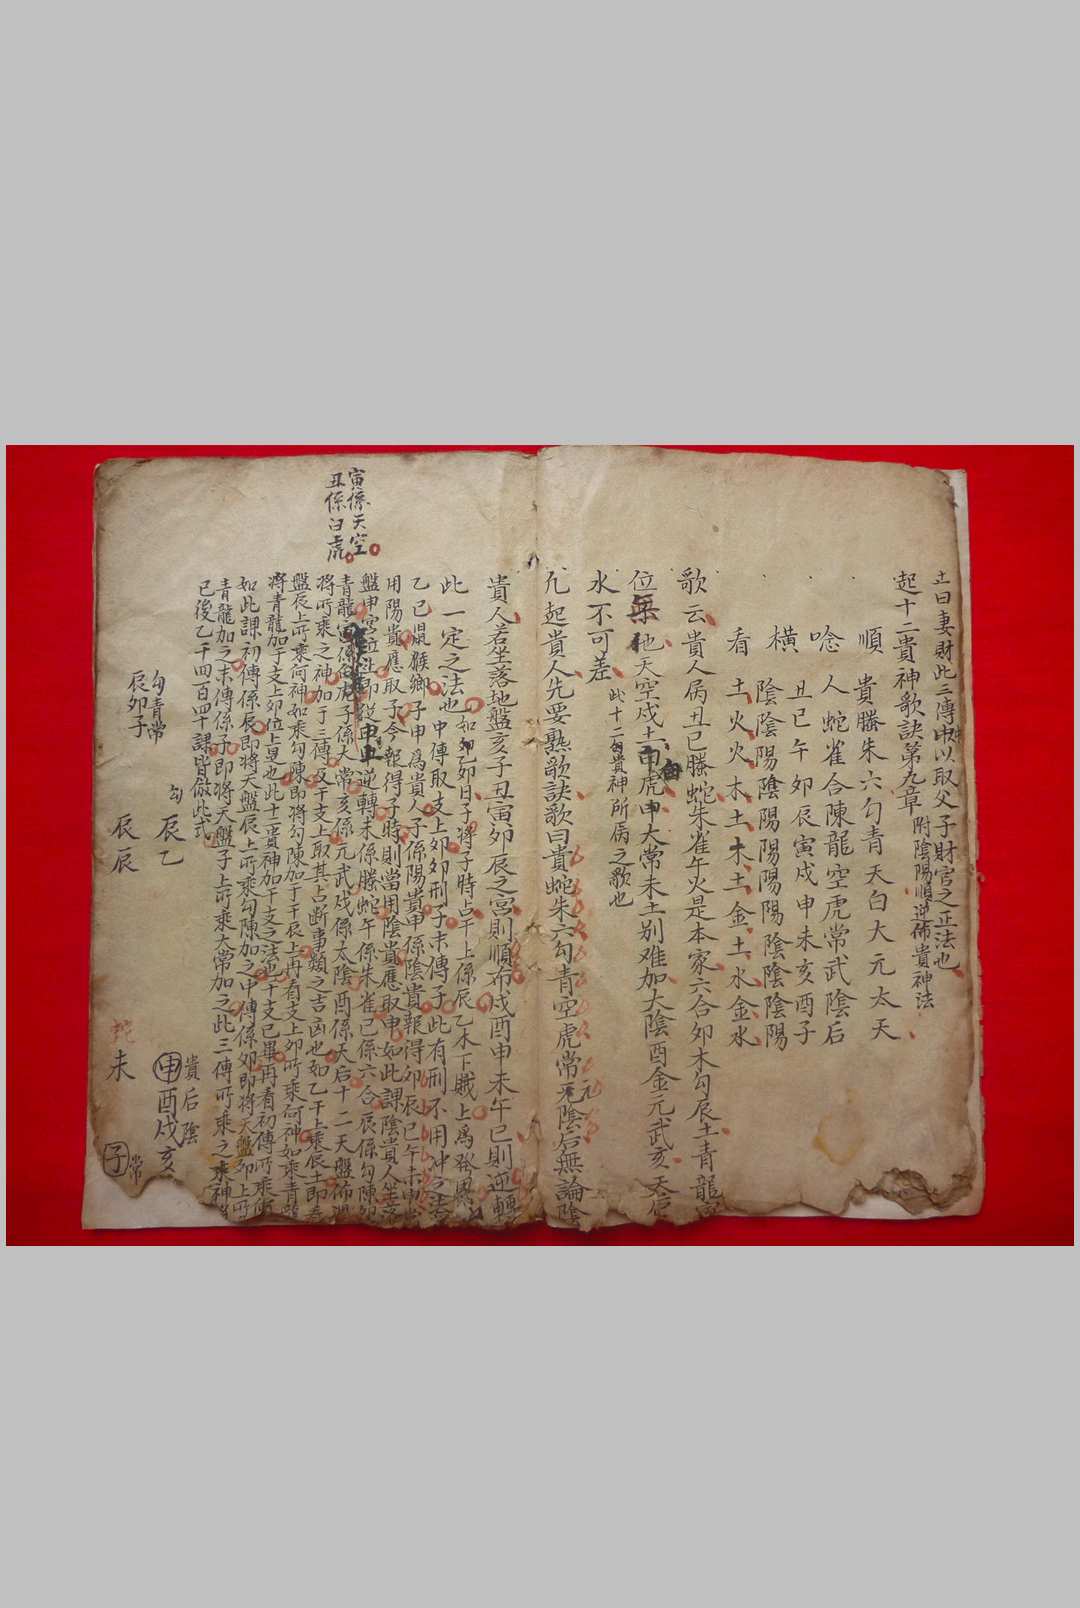 土曰妻財此三傳中以取父子財官之正法也
起十二貴神歌訣第九章 附陰陽順逆佈貴神法
順 貴螣朱六勾青天白大元太天
唸 人蛇雀合陳龍空虎常武陰后
橫 丑巳午卯辰寅戌申未亥酉子
陰陰陽陰陽陽陽陽陰陰陰陽
看 土火火木土木土金土水金水
歌云貴人屬丑巳螣蛇朱雀午火是本家六合卯木勾辰土青龍寅
位 他天空戌土白虎申大常未土别难加大陰酉金元武亥天后
水不可差 此十二貴神所屬之歌也
凡起貴人先要熟歌訣歌曰貴蛇朱六勾青空虎常元陰后無論陰
貴人若坐落地盤亥子丑寅卯辰之宮則順布戌酉申未午巳則逆轉
此一定之法也 如乙卯日子將子時占干上係辰乙木下賊上爲發
乙己鼠猴鄉子申爲貴人子係陽貴申係陰貴報得卯辰巳午未申
用陽貴應取子今報得子時則當用陰貴應取申如此課陰貴人坐落
盤申宮位 即從申 逆轉未係螣蛇午係朱雀巳係六合辰係勾陳卯
青龍寅係 子係大常亥係元武戌係太陰酉係天后十二天盤佈
將所乘之神加于三傳及干支上取其占斷事類之吉凶也如乙干上乘辰土即
盤辰上所乘何神如乘勾陳即將勾陳加于干辰上再看支上卯所乘何神如乘青龍
將青龍加于支上卯位上是也此十二貴神加干支之法也干支已畢再看初傳所乘
如此課初傳係辰即將天盤辰上所乘勾陳加之中傳係卯即將天盤卯上所
青龍加之末傳係子即將天盤子上所乘大常加之此三傳所乘之神
已後乙千四百四十課皆倣此式
中傳取支上卯卯刑子末傳子此有刑不用冲之法
寅係天空
丑係白虎
勾青常
辰卯子
勾
辰乙
辰辰
貴后陰
申酉戌亥
蛇
未
常
子